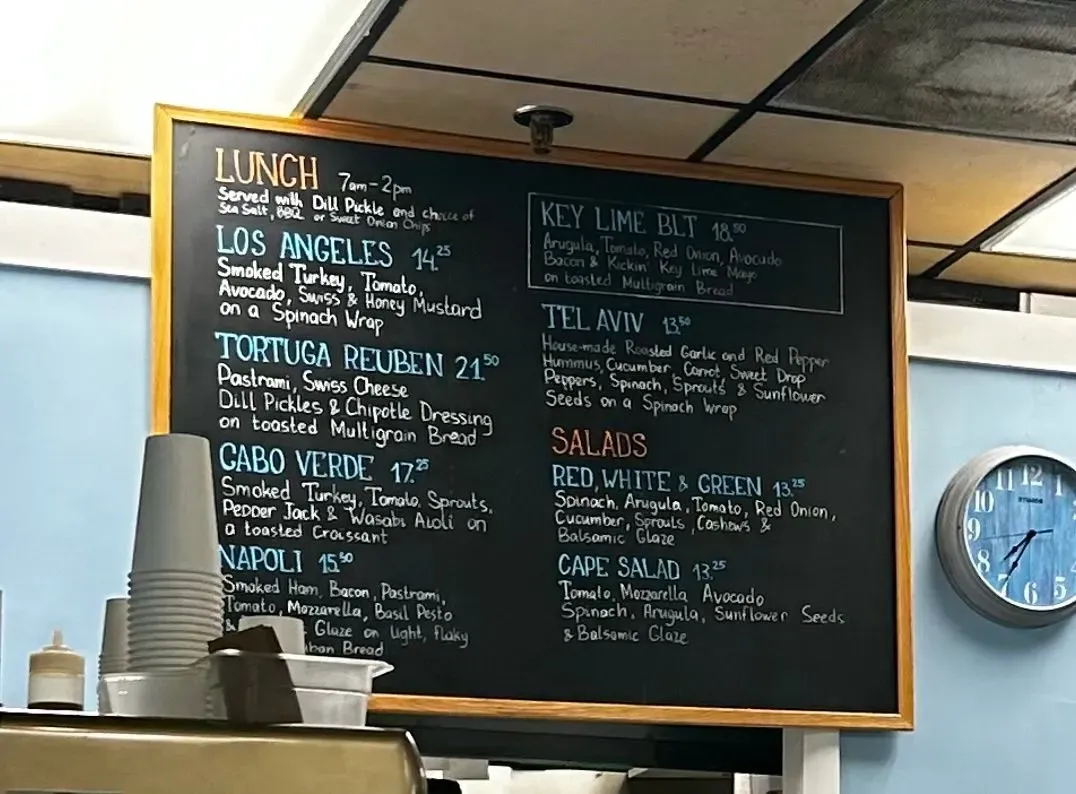 LUNCH 7am-2pm
Served with Dill Pickle and choice of
Sea Salt, BBQ or Sweet Onion Chips
LOS ANGELES 14.25
Smoked Turkey, Tomato,
Avocado, Swiss & Honey Mustard
on a Spinach Wrap
TORTUGA REUBEN 21.50
Pastrami, Swiss Cheese
Dill Pickles & Chipotle Dressing
on toasted Multigrain Bread
CABO VERDE 17.25
Smoked Turkey, Tomato, Sprouts,
Pepper Jack & Wasabi Aioli on
a toasted Croissant
NAPOLI 15.50
Smoked Ham, Bacon, Pastrami,
Tomato, Mozzarella, Basil Pesto
& Glaze on light, flaky
Bread
KEY LIME BLT 18.50
Arugula, Tomato, Red Onion, Avocado
Bacon & Kickin' Key Lime Mayo
on toasted Multigrain Bread
TEL AVIV 13.50
House-made Roasted Garlic and Red Pepper
Hummus, Cucumber, Carrot, Sweet Drop
Peppers, Spinach, Sprouts & Sunflower
Seeds on a Spinach Wrap
SALADS
RED, WHITE & GREEN 13.25
Spinach, Arugula, Tomato, Red Onion,
Cucumber, Sprouts, Cashews &
Balsamic Glaze
CAPE SALAD 13.25
Tomato, Mozzarella Avocado
Spinach, Arugula, Sunflower Seeds
& Balsamic Glaze
11 12 1
10
9
8
7 6 5